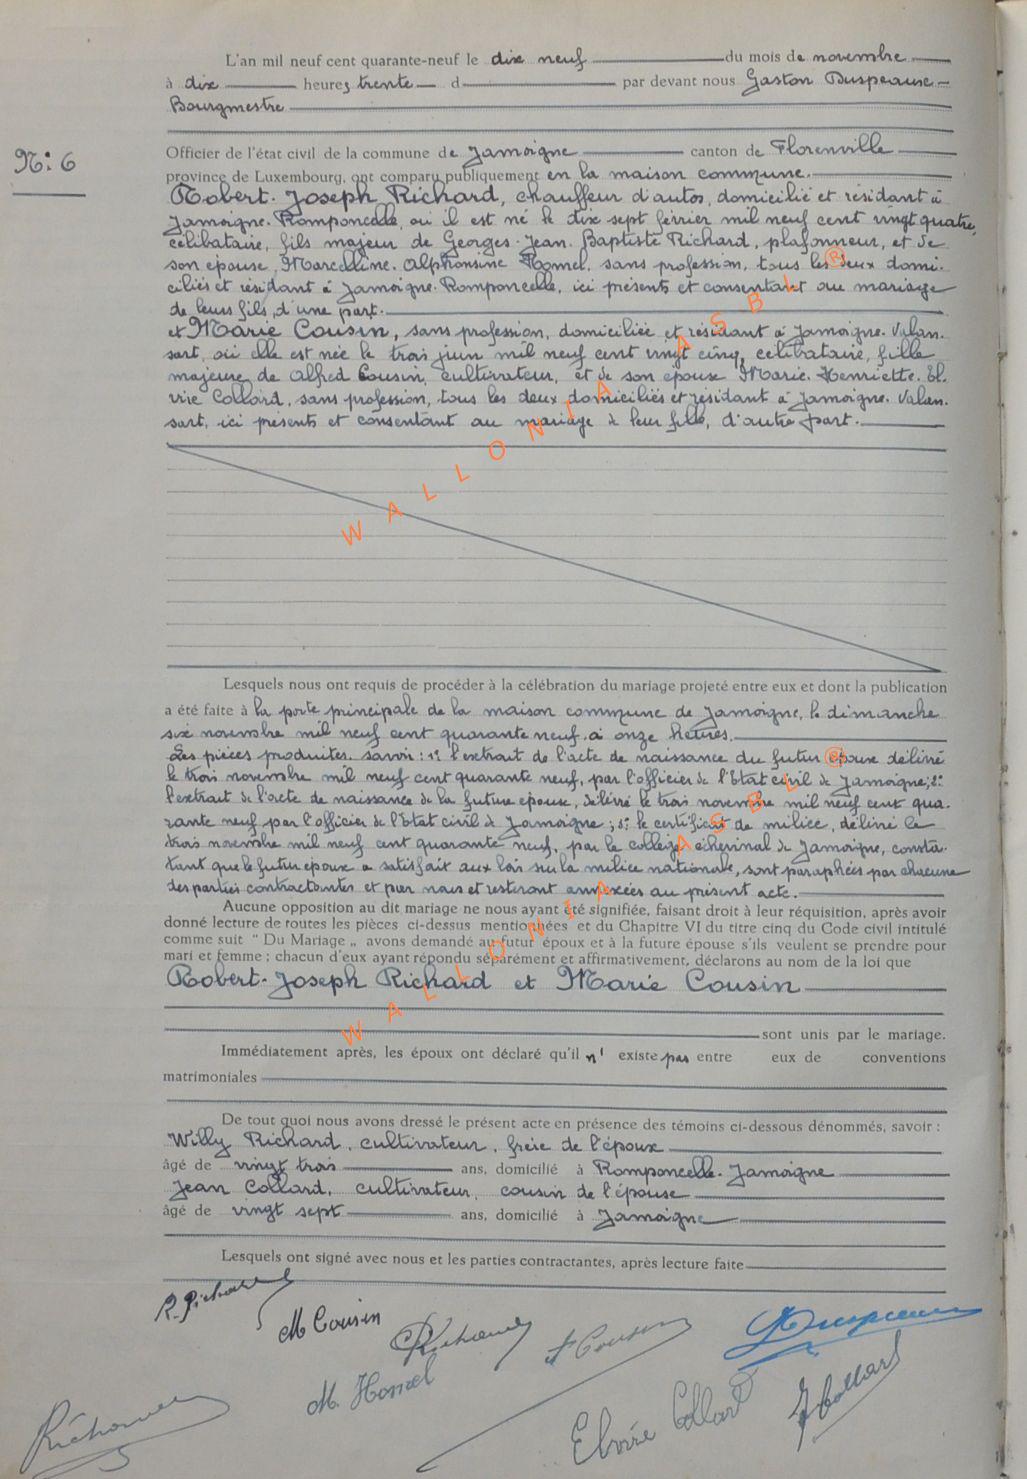 L'an mil neuf cent quarante-neuf le dix neuf du mois de novembre
à dix heures trente d par devant nous Gaston
Bourgmestre
N° 6
Officier de l'état civil de la commune de Jamoigne canton de Florenville
province de Luxembourg, ont comparu publiquement en la maison commune.
Robert-Joseph Richard, chauffeur d'autos, domicilié et résidant à
Jamoigne-Romponcelle, où il est né le dix sept février mil neuf cent vingt quatre,
célibataire, fils majeur de Georges-Jean-Baptiste Richard, plafonneur, et de
son épouse, Marcelline-Alphonsine, sans profession, tous les deux domi-
ciliés et résidant à Jamoigne-Romponcelle, ici présents et consentant au mariage
de leur fils, d'une part.
et Marie Cousin, sans profession, domiciliée et résidant à Jamoigne-Valan-
sart, où elle est née le trois juin mil neuf cent vingt cinq, célibataire, fille
majeure de Alfred Cousin, cultivateur, et de son épouse Marie-Henriette-El-
vire Collard, sans profession, tous les deux domiciliés et résidant à Jamoigne-Valan-
sart, ici présents et consentant au mariage de leur fille, d'autre part.
WALLONIA ASBL ®
Lesquels nous ont requis de procéder à la célébration du mariage projeté entre eux et dont la publication
a été faite à la porte principale de la maison commune de Jamoigne, le dimanche
six novembre mil neuf cent quarante neuf, à onze heures.
Les pièces produites, savoir : 1° l'extrait de l'acte de naissance du futur époux délivré
le trois novembre mil neuf cent quarante neuf, par l'officier de l'Etat civil de Jamoigne; 2°
l'extrait de l'acte de naissance de la future épouse, délivré le trois novembre mil neuf cent qua-
rante neuf par l'officier de l'Etat civil de Jamoigne; 3° le certificat de milice, délivré le
trois novembre mil neuf cent quarante neuf, par le collège échevinal de Jamoigne, consta-
tant que le futur époux a satisfait aux lois sur la milice nationale, sont paraphées par chacune
des parties contractantes et par nous et resteront annexées au présent acte.
WALLONIA ASBL ®
Aucune opposition au dit mariage ne nous ayant été signifiée, faisant droit à leur réquisition, après avoir
donné lecture de toutes les pièces ci-dessus mentionnées et du Chapitre VI du titre cinq du Code civil intitulé
comme suit “ Du Mariage „ avons demandé au futur époux et à la future épouse s'ils veulent se prendre pour
mari et femme ; chacun d'eux ayant répondu séparément et affirmativement, déclarons au nom de la loi que
Robert-Joseph Richard et Marie Cousin
sont unis par le mariage.
Immédiatement après, les époux ont déclaré qu'il n' existe pas entre eux de conventions
matrimoniales
De tout quoi nous avons dressé le présent acte en présence des témoins ci-dessous dénommés, savoir :
Willy Richard, cultivateur, frère de l'époux
âgé de vingt trois ans, domicilié à Romponcelle-Jamoigne
Jean Collard, cultivateur, cousin de l'épouse
âgé de vingt sept ans, domicilié à Jamoigne
Lesquels ont signé avec nous et les parties contractantes, après lecture faite
R. Richard
M Cousin
Richard
A Cousin
Richard
M.
Elvire Collard
J Collard